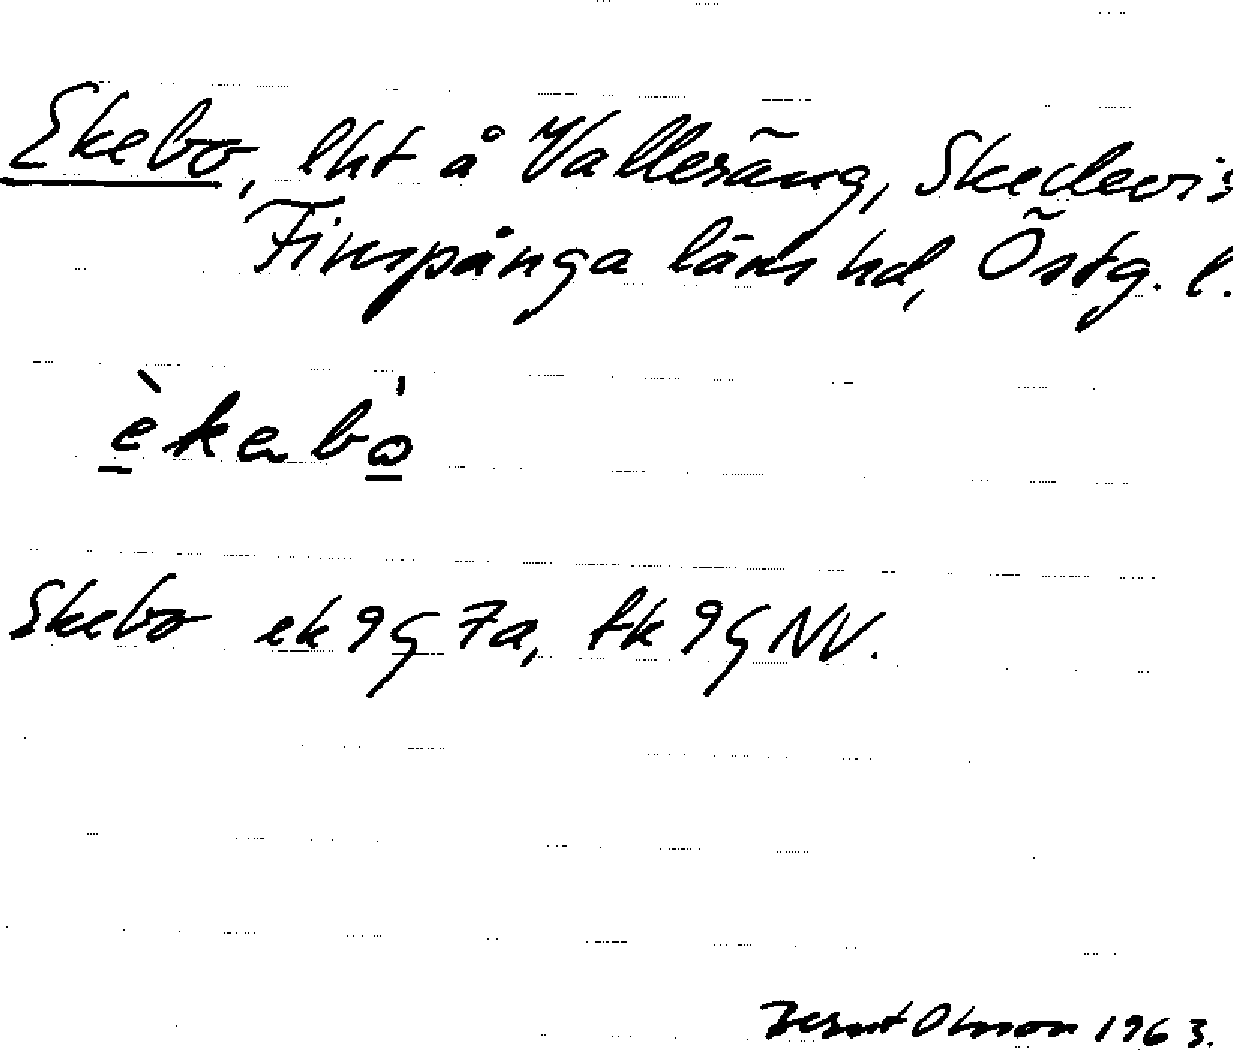 Ekebo, lht å Vallesäng, Skedevi s
Finspånga läns hd, Östg. l.
èkebo̍
Skebo ek 9G 7a, tk 9G NV.
Bernt Olsson 1963.